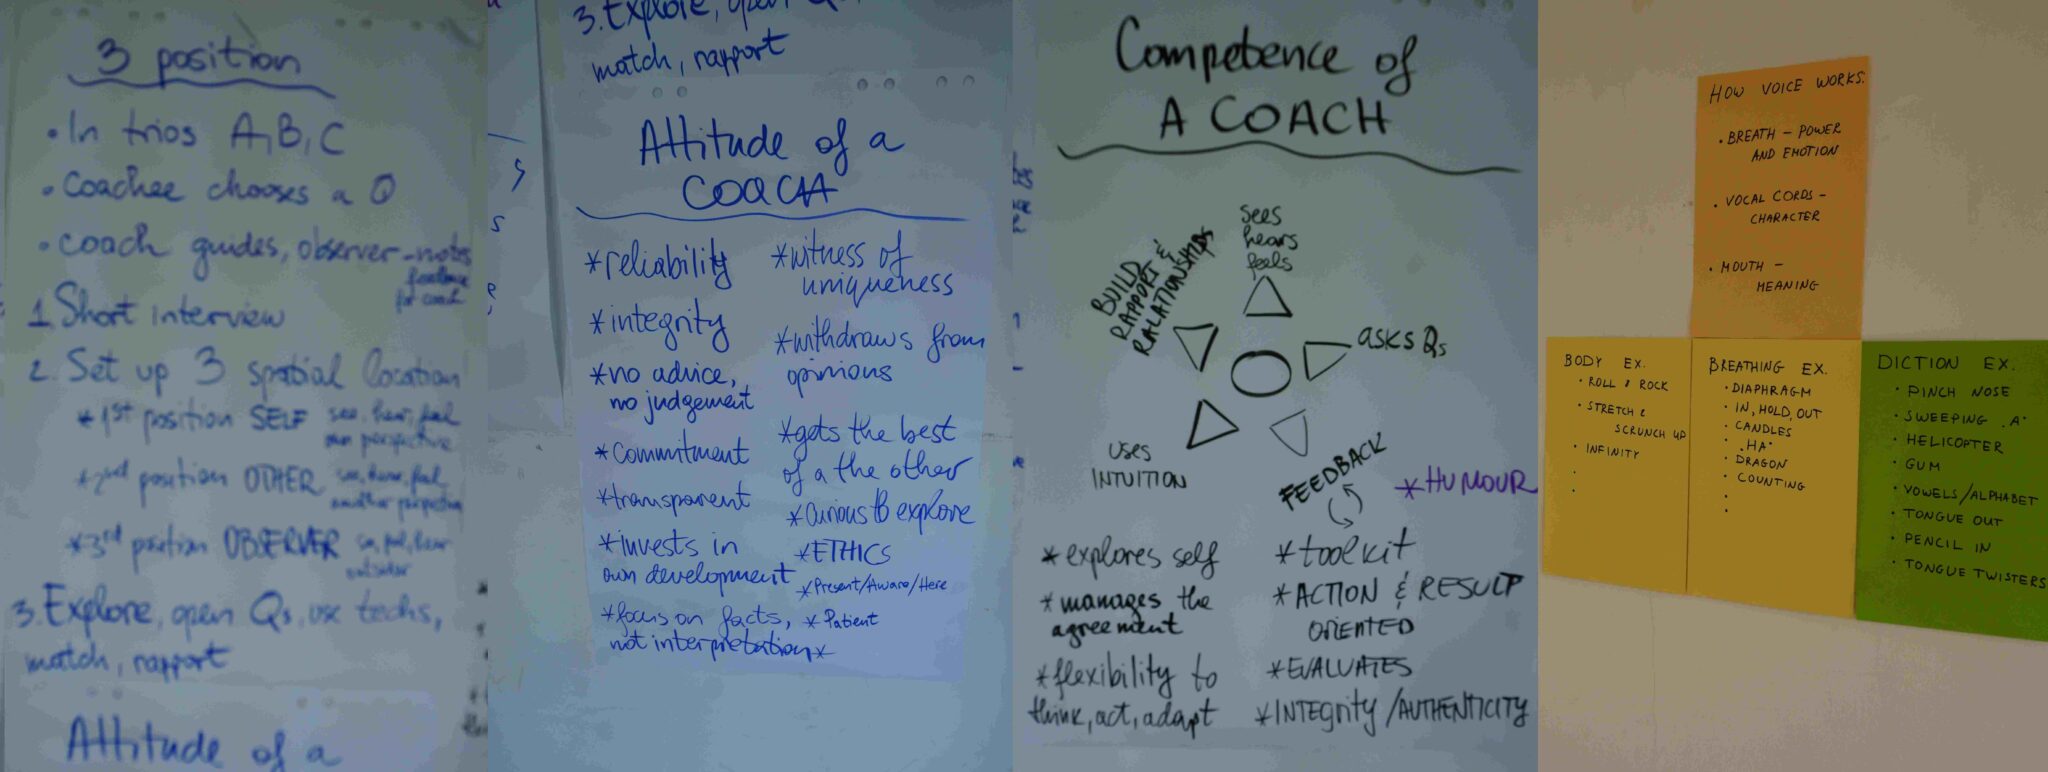 3 position
• In trios A, B, C
• Coachee chooses a Q
• Coach guides, observer - notes
for coach
1. Short interview
2. Set up 3 spatial location
* 1st position SELF see, hear, feel
own perspective
* 2nd position OTHER see, hear, feel
another perspective
* 3rd position OBSERVER see, feel, hear
outsider
3. Explore, open Qs, use techs,
match, rapport
Attitude of a
3. Explore, open Qs,
match, rapport
Attitude of a
COACH
* reliability
* integrity
* no advice,
no judgement
* Commitment
* transparent
* invests in
own development
* focus on facts,
not interpretation
* witness of
uniqueness
* withdraws from
opinions
* gets the best
of a the other
* Curious to explore
* ETHICS
* Present/Aware/Here
* Patient
*
Competence of
A COACH
BUILD
RAPPORT &
RALATIONSHIPS
Sees
hears
feels
asks Qs
USES
INTUITION
FEEDBACK
* HUMOUR
* explores self
* manages the
agreement
* flexibility to
think, act, adapt
* toolkit
* ACTION & RESULT
ORIENTED
* EVALUATES
* INTEGRITY /AUTHENTICITY
HOW VOICE WORKS:
• BREATH – POWER
AND EMOTION
• VOCAL CORDS –
CHARACTER
• MOUTH –
MEANING
BODY EX.
• ROLL & ROCK
• STRETCH &
SCRUNCH UP
• INFINITY
BREATHING EX.
• DIAPHRAGM
• IN, HOLD, OUT
• CANDLES
• „HA"
• DRAGON
• COUNTING
DICTION EX.
• PINCH NOSE
• SWEEPING „A"
• HELICOPTER
• GUM
• VOWELS/ALPHABET
• TONGUE OUT
• PENCIL IN
• TONGUE TWISTERS